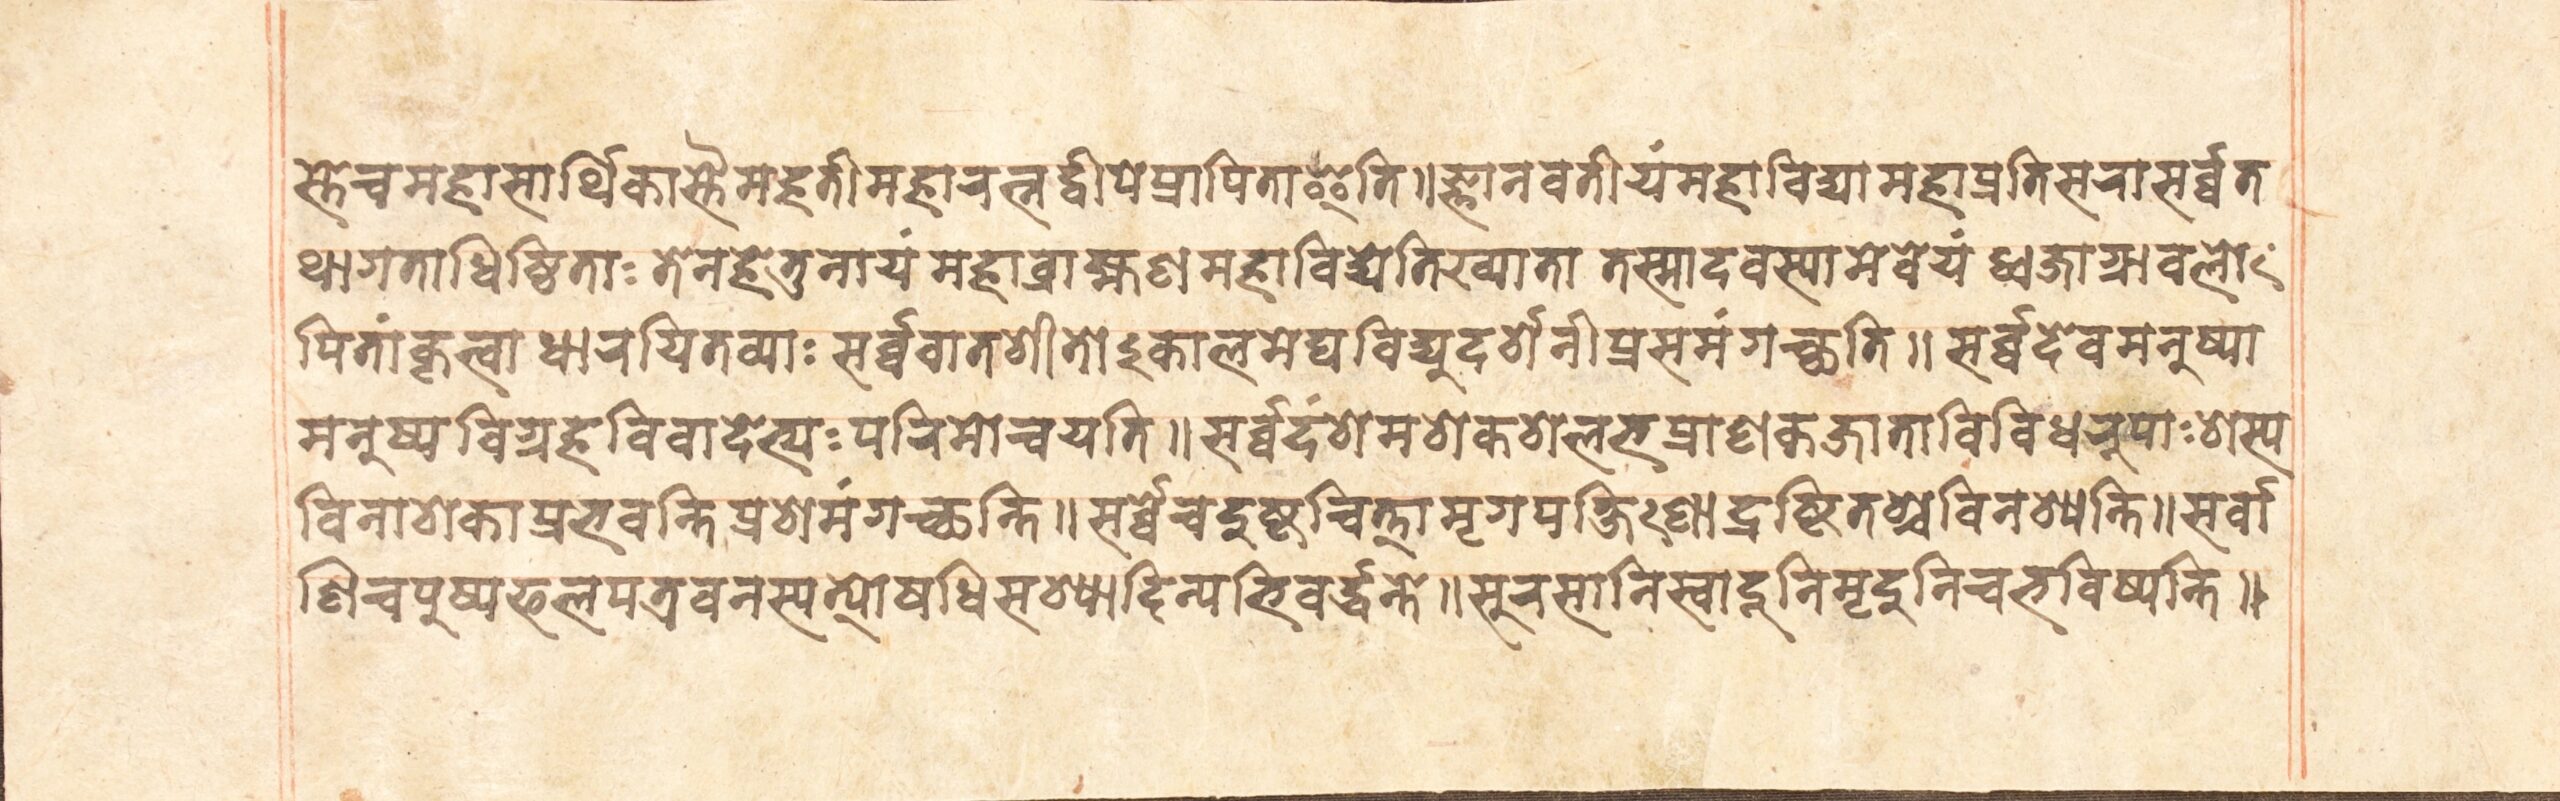 स्तेचमहासार्थिकास्तैमहतीमहारत्नद्वीपेप्रापिताइति॥ज्ञानवतीयंमहाविद्यामहाप्रतिसरासर्व्वत
थागताधिष्ठिताः तेनहेतुनायं महाब्राह्मणमहाविद्येतिख्याता तस्मादवस्यामेवेयं ध्वजाग्रावलो
पितांकृत्वा धारयितव्याः सर्व्ववातशीतोऽकालमेघविद्युदर्शनीप्रसमंगच्छति॥ सर्व्वदेवमनुष्या
मनुष्यविग्रहविवादेभ्यः परिमोचयति॥ सर्व्वदंशमशकशलभप्राणकजाताविविधरूपाः शस्य
विनाशकाप्रभवन्तिप्रशमंगच्छन्ति॥ सर्व्वेचदुष्टचित्तामृगपक्षिणाद्रष्टितश्चेविनश्यन्ति॥ सर्वा
णिचपुष्पफलपत्रवनस्पत्योषधिसश्यादिन्यभिवर्द्धन्ते॥ सुरसानिस्वादूनिमृदुनिचभविष्यन्ति॥